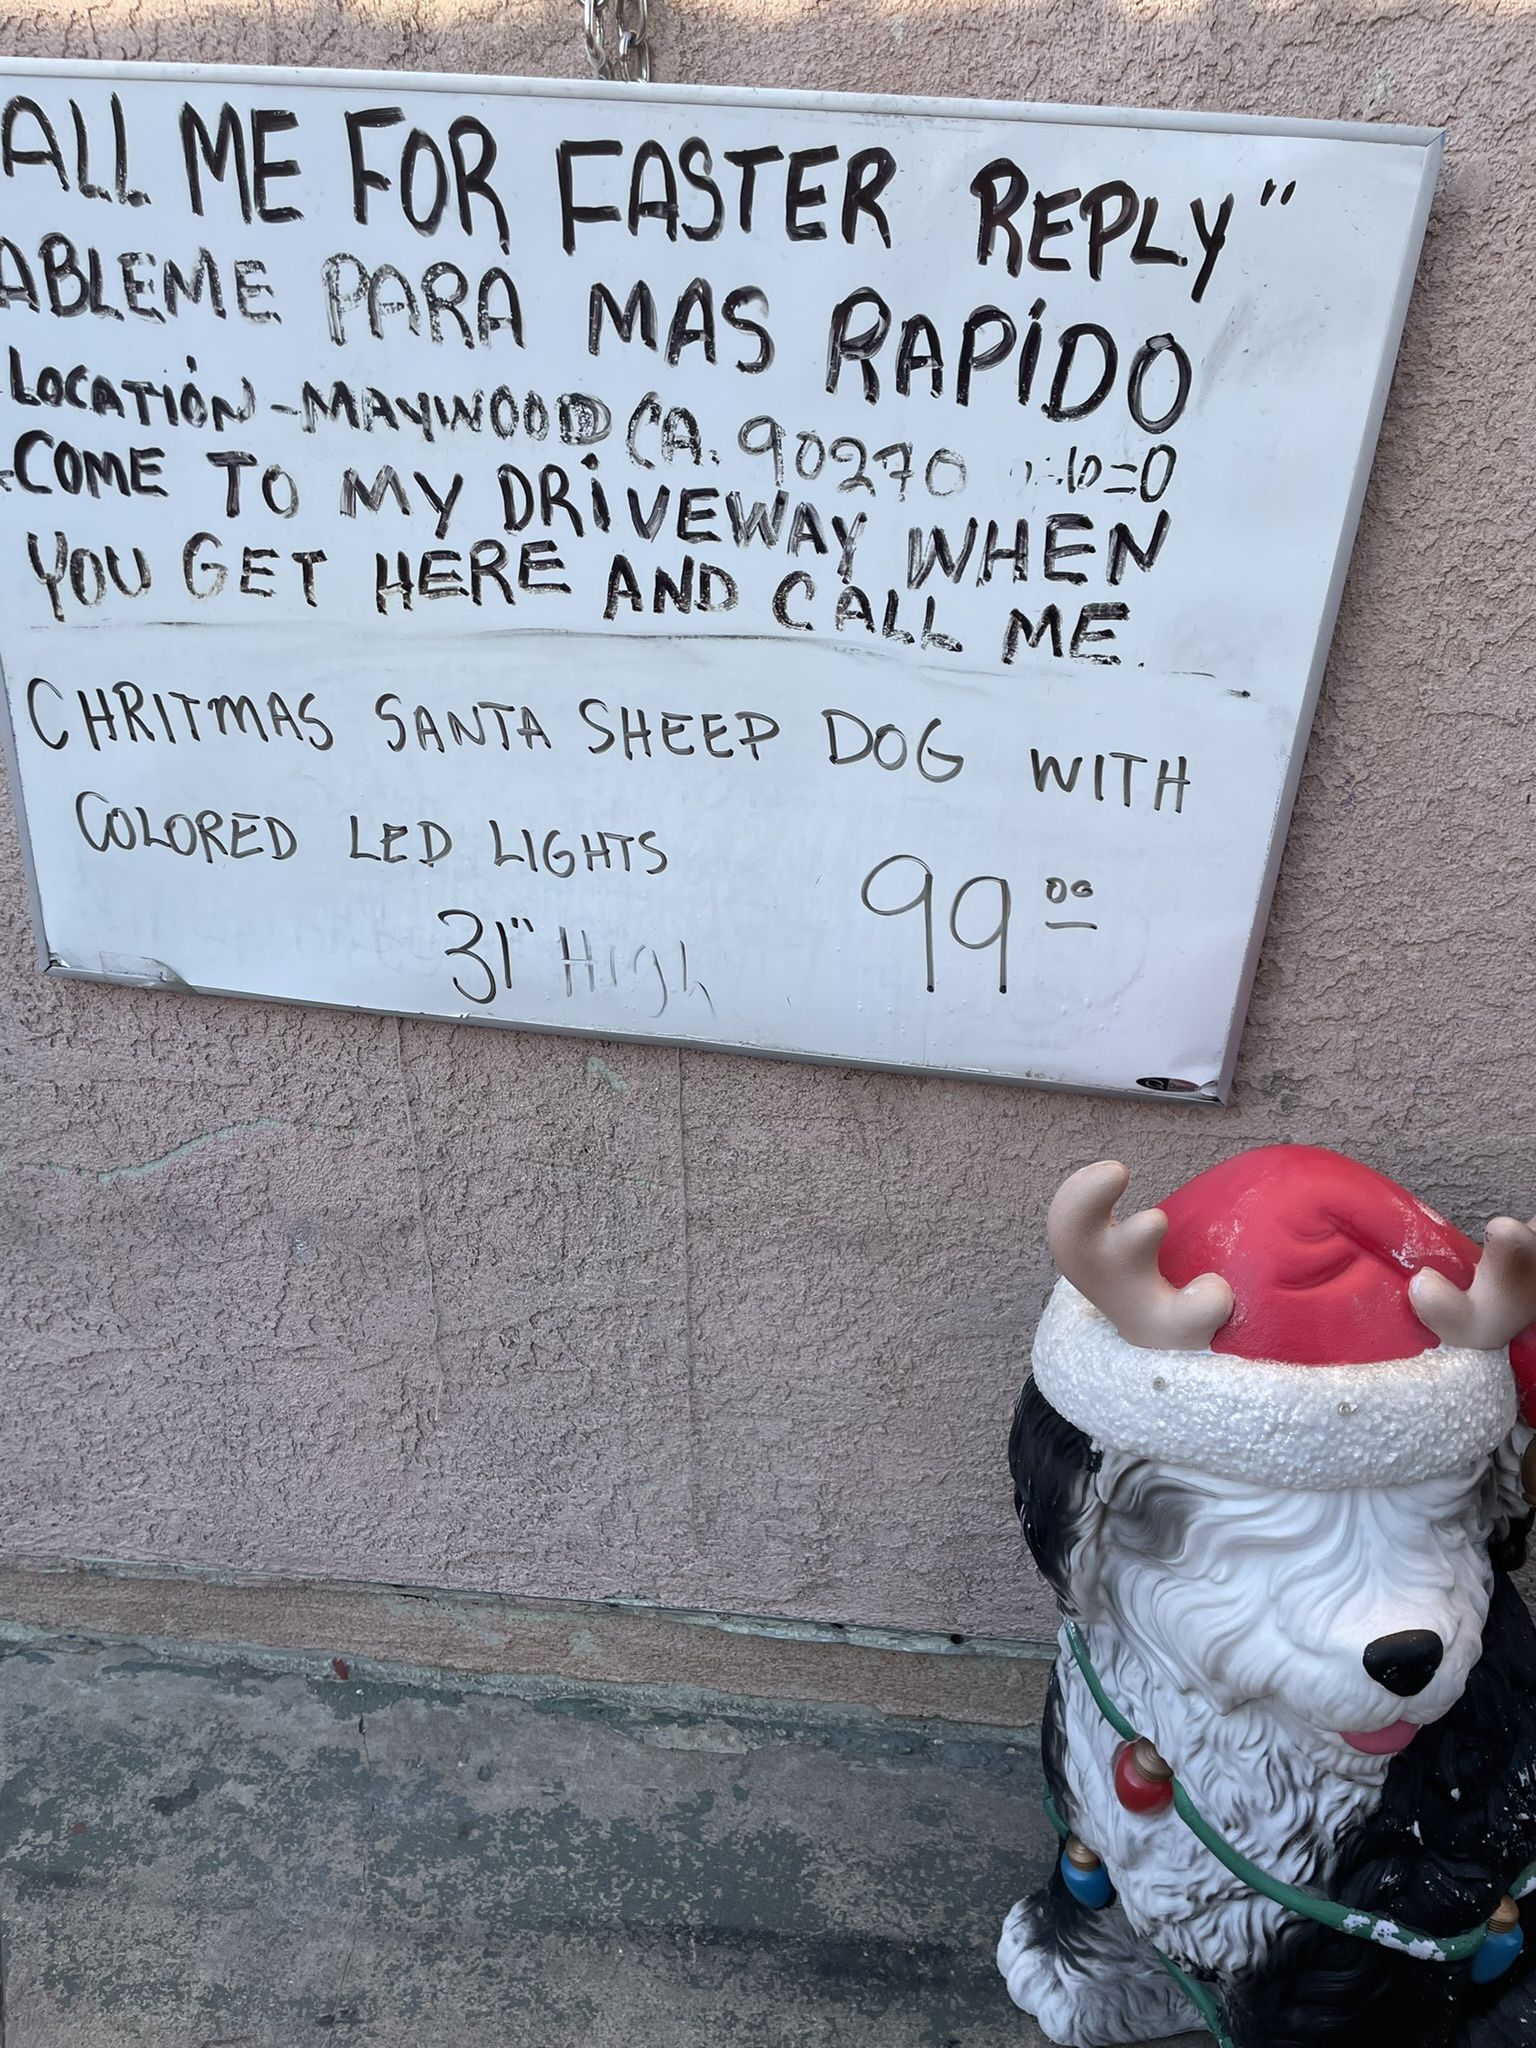 ALL ME FOR FASTER REPLY"
ABLEME PARA MAS RAPIDO
LOCATION - MAYWOOD CA. 90270
COME TO MY DRIVEWAY WHEN
YOU GET HERE AND CALL ME.
CHRITMAS SANTA SHEEP DOG WITH
COLORED LED LIGHTS
31" High 99 00